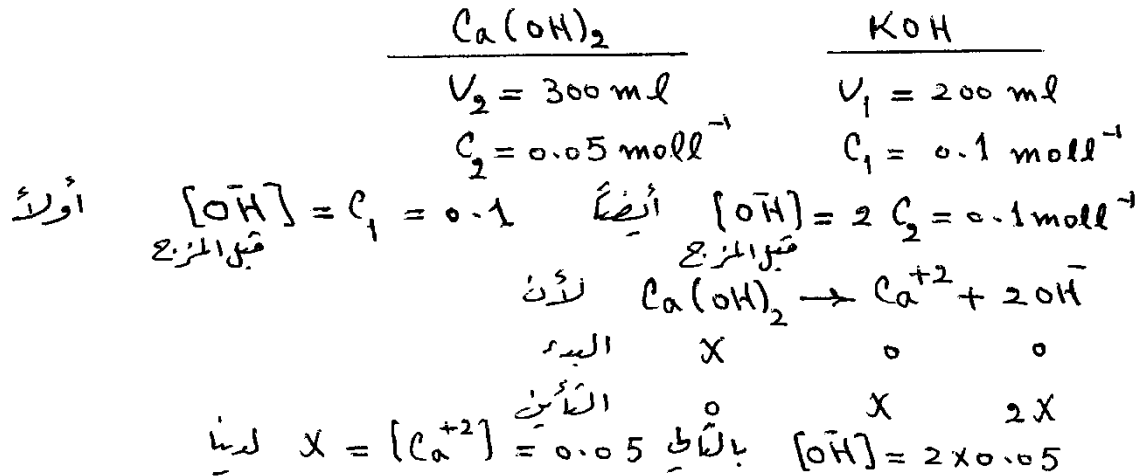 Ca(OH)₂ KOH
V₂ = 300 ml V₁ = 200 ml
C₂ = 0.05 moll⁻¹ C₁ = 0.1 moll⁻¹
أولاً [OH⁻] = C₁ = 0.1 أيضاً [OH⁻] = 2 C₂ = 0.1 moll⁻¹
قبل المزج قبل المزج
لأن Ca(OH)₂ → Ca⁺² + 2OH⁻
البدء X 0 0
التأين 0 X 2X
لدينا X = [Ca⁺²] = 0.05 بالتالي [OH⁻] = 2×0.05